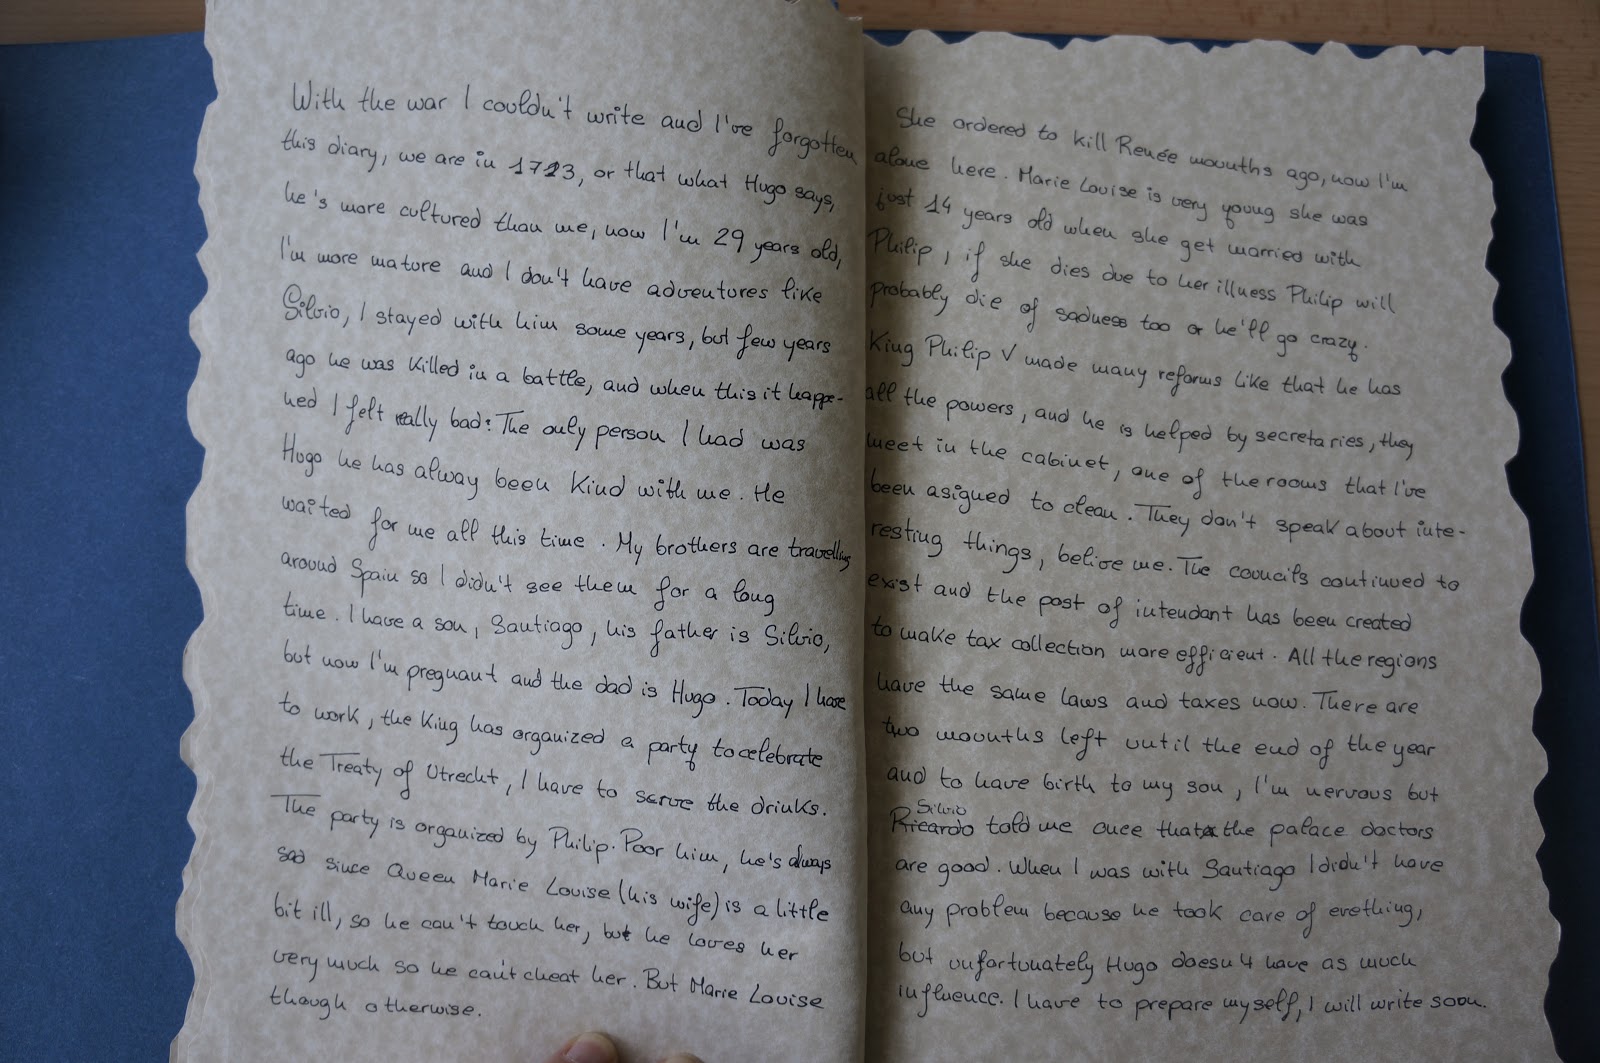 With the war I couldn't write and I've forgotten
this diary, we are in 1723, or that what Hugo says,
he's more cultured than me, now I'm 29 years old,
I'm more mature and I don't have adventures like
Silvio, I stayed with him some years, but few years
ago he was killed in a battle, and when this it happe-
ned I felt really bad: The only person I had was
Hugo he has alway been kind with me. He
waited for me all this time. My brothers are travelling
around Spain so I didn't see them for a long
time. I have a son, Santiago, his father is Silvio,
but now I'm pregnant and the dad is Hugo. Today I have
to work, the King has organized a party to celebrate
the Treaty of Utrecht, I have to serve the drinks.
The party is organized by Philip. Poor him, he's always
sad since Queen Marie Louise (his wife) is a little
bit ill, so he can't touch her, but he loves her
very much so he can't cheat her. But Marie Louise
though otherwise.
She ordered to kill Renée moonths ago, now I'm
alone here. Marie Louise is very young she was
just 14 years old when she get married with
Philip, if she dies due to her illness Philip will
probably die of sadness too or he'll go crazy.
King Philip V made many reforms like that he has
all the powers, and he is helped by secretaries, they
meet in the cabinet, one of the rooms that I've
been asigned to clean. They don't speak about inte-
resting things, belive me. The councils continued to
exist and the post of intendant has been created
to make tax collection more efficient. All the regions
have the same laws and taxes now. There are
two moonths left until the end of the year
and to have birth to my son, I'm nervous but
Silvio
Ricardo told me once that the palace doctors
are good. When I was with Santiago I didn't have
any problem because he took care of evething,
but unfortunately Hugo doesn't have as much
influence. I have to prepare myself, I will write soon.